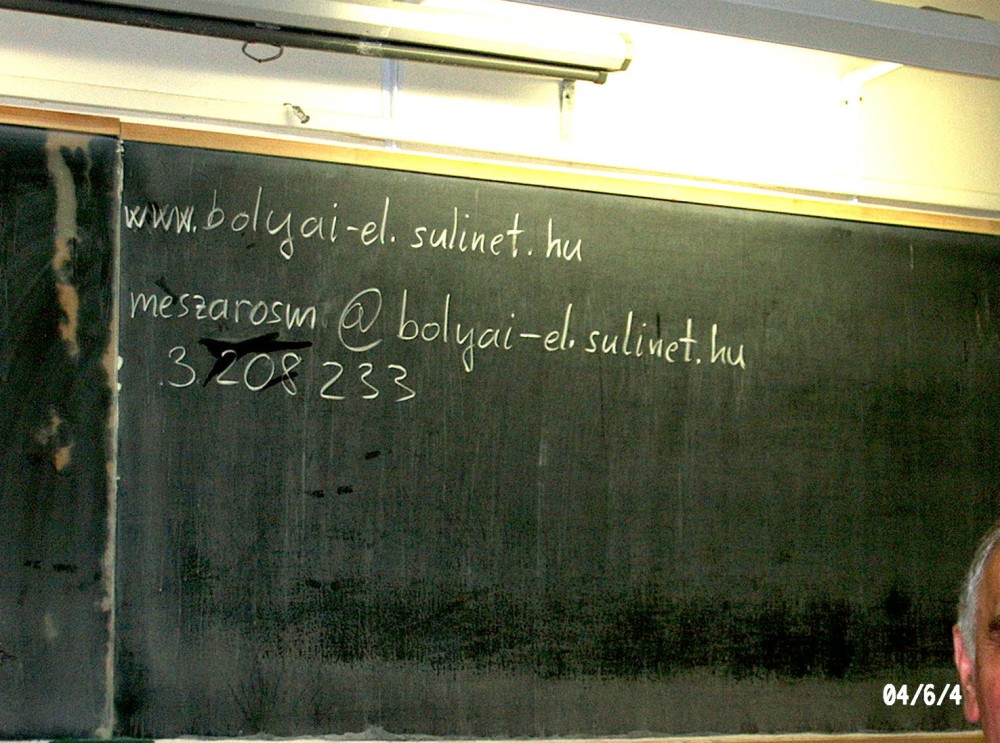 www.bolyai-el.sulinet.hu
meszarosm @ bolyai-el.sulinet.hu
: 3 208 233
04/6/4